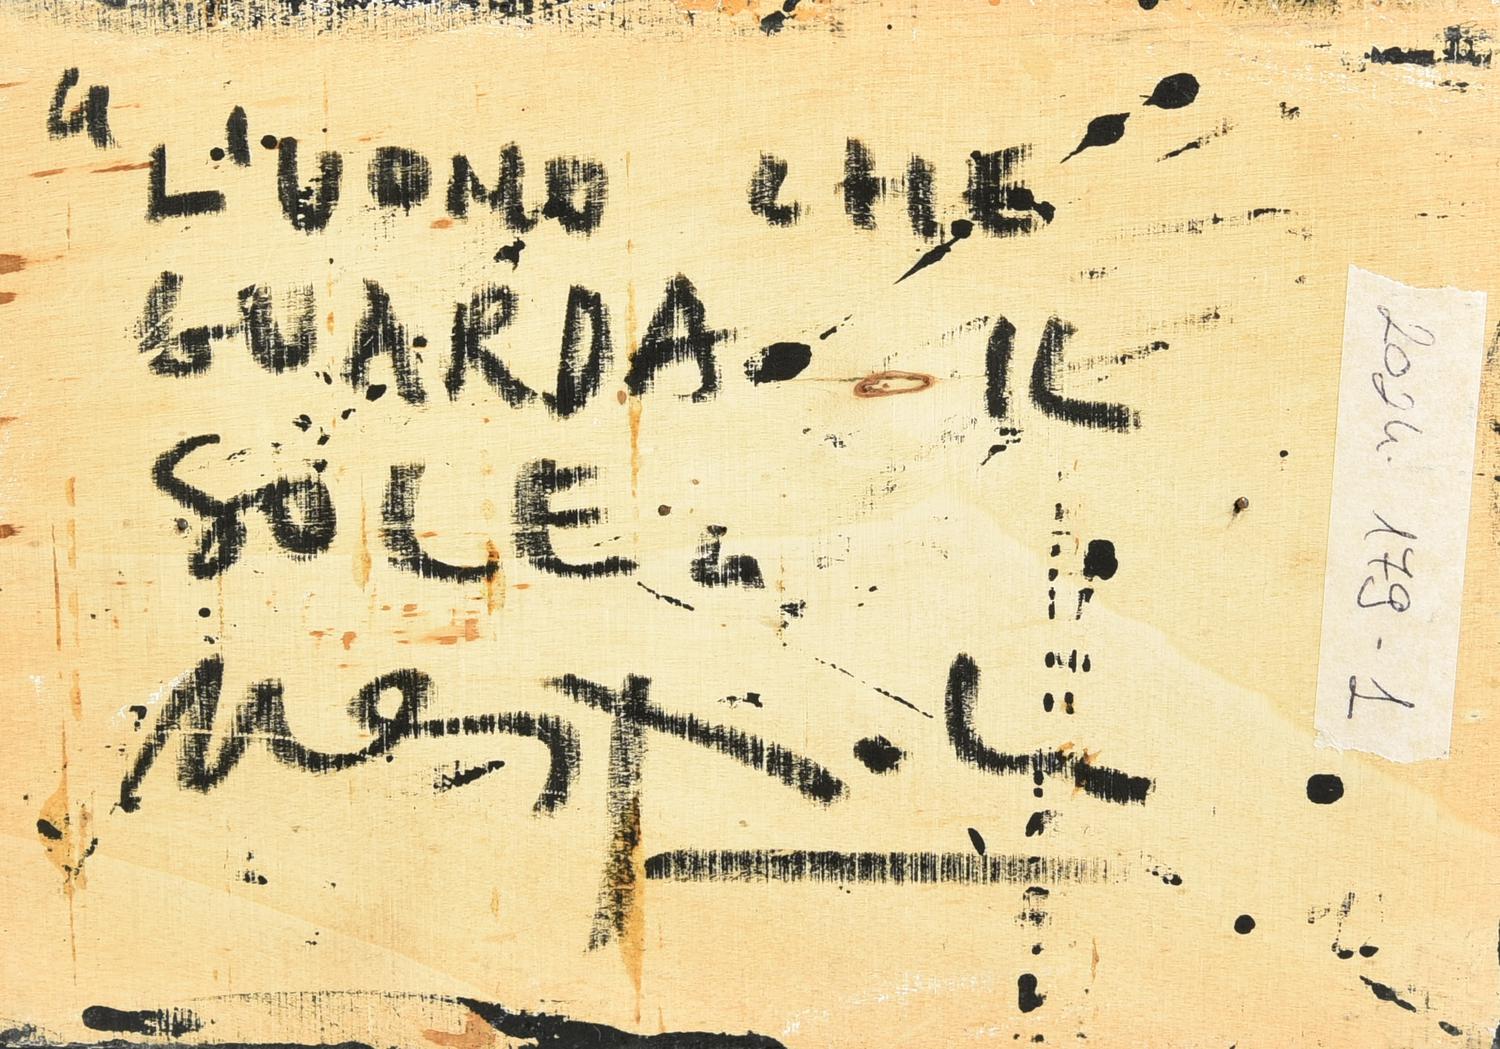 "L'UOMO CHE
GUARDA IL
SOLE"
179-1